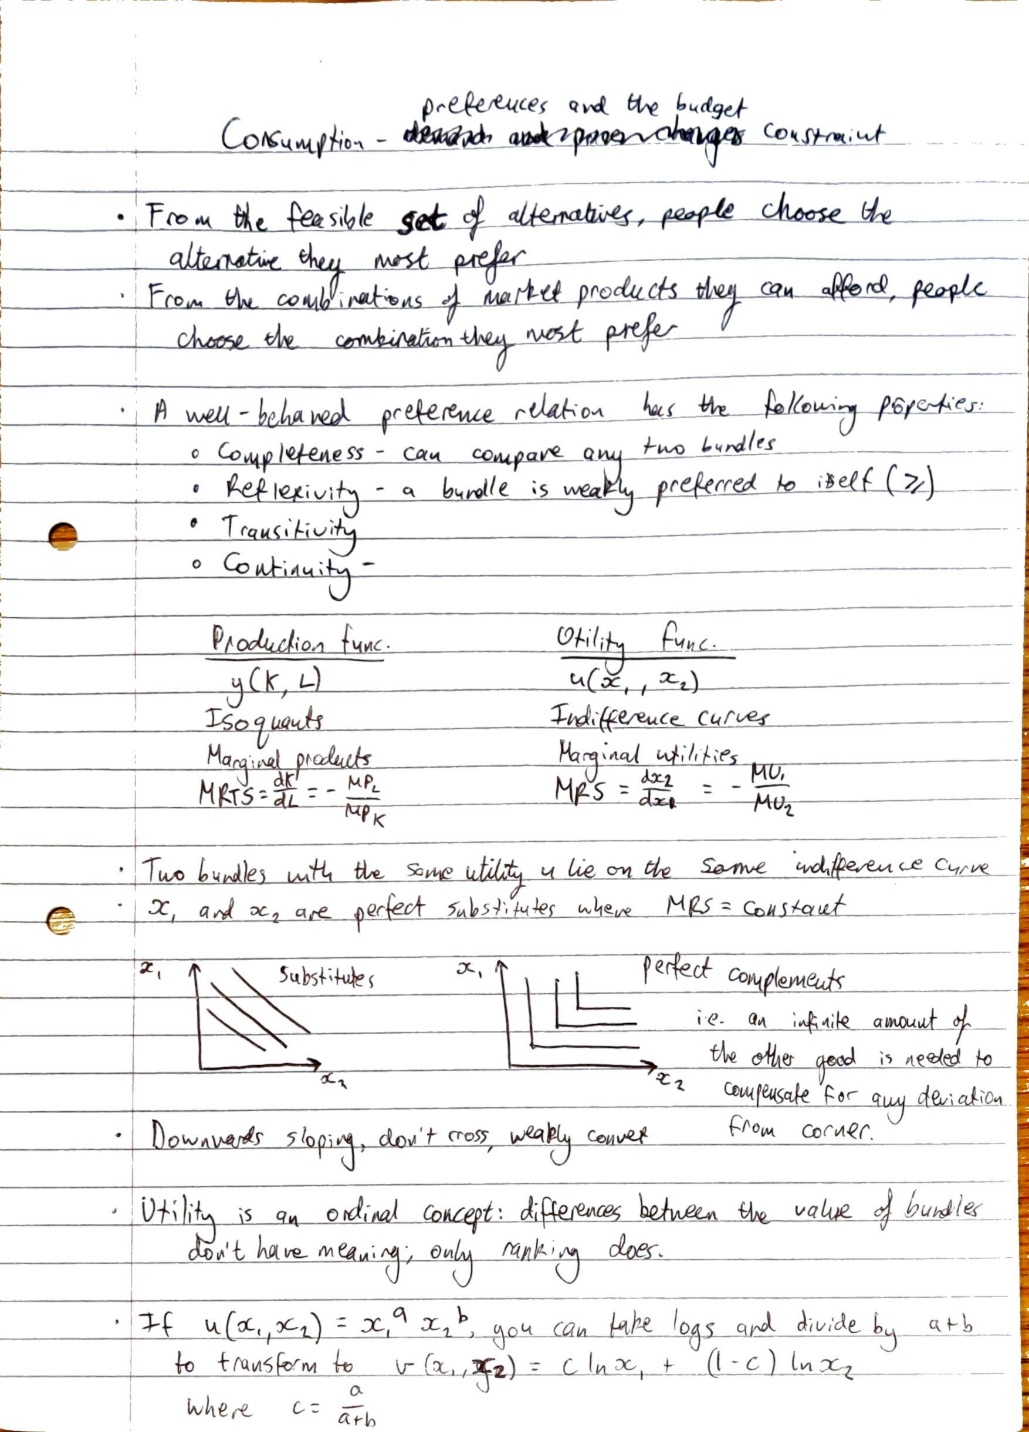 preferences and the budget
Consumption - demand and power changes constraint
• From the feasible set of alternatives, people choose the
alternative they most prefer
• From the combinations of market products they can afford, people
choose the combination they most prefer
• A well-behaved preference relation has the following properties:
○ Completeness - can compare any two bundles
• Reflexivity - a bundle is weakly preferred to itself (≽)
• Transitivity
○ Continuity -
Production func. Utility func.
y(K, L) u(x₁, x₂)
Isoquants Indifference curves
Marginal products Marginal utilities
MRTS = dK/dL = - MP_L/MP_K MRS = dx₂/dx₁ = - MU₁/MU₂
• Two bundles with the same utility u lie on the same indifference curve
• x₁ and x₂ are perfect substitutes where MRS = constant
x₁ substitutes x₁ perfect complements
i.e. an infinite amount of
the other good is needed to
x₂ x₂ compensate for any deviation
from corner.
• Downwards sloping, don't cross, weakly convex
• Utility is an ordinal concept: differences between the value of bundles
don't have meaning; only ranking does.
• If u(x₁, x₂) = x₁ᵃ x₂ᵇ, you can take logs and divide by a+b
to transform to v(x₁, x₂) = c ln x₁ + (1-c) ln x₂
where c = a/a+b